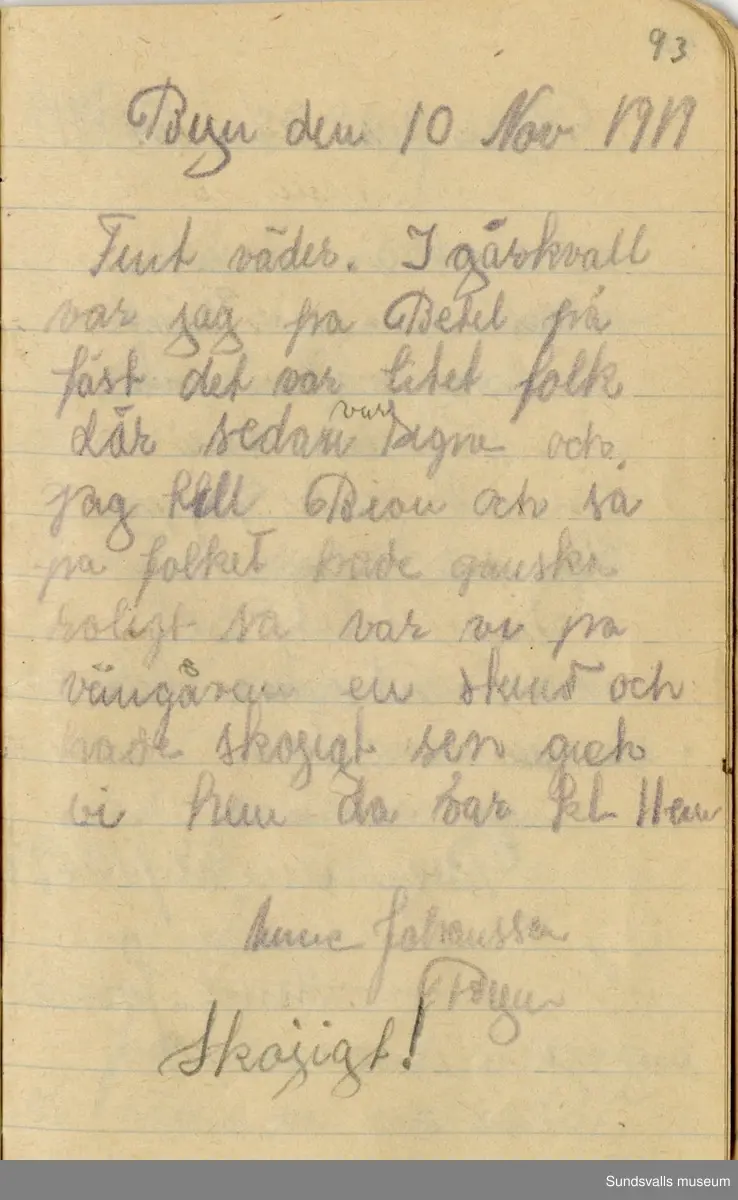 93
Byn den 10 Nov 1919
Fint väder. I gårkvall
var jag pa Betel på
fäst det var litet folk
där sedan var Signe och
jag till Bion och sa
pa folket hade ganska
roligt sa var vi pa
vängåren en stund och
hade skojigt sen gick
vi hem da var kl 11 em
Johansson
Byn
Skojigt!
Sundsvalls museum